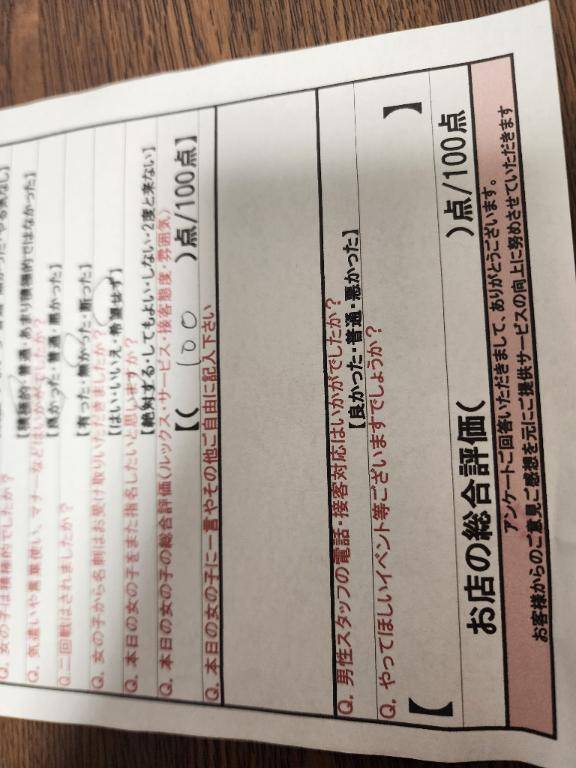 Q. 女の子は積極的でしたか?
【積極的・普通・あまり積極的ではなかった】
Q. 気遣いや言葉使い、マナーなどはいかがでしたか?
【良かった・普通・悪かった】
Q. 二回戦はされましたか?
【有った・無かった・断った】
Q. 女の子から名刺はお受け取りいただきましたか?
【はい・いいえ・希望せず】
Q. 本日の女の子をまた指名したいと思いますか?
【絶対する・してもよい・しない・2度と来ない】
Q. 本日の女の子の総合評価(ルックス・サービス・接客態度・雰囲気)
【( 100 )点/100点】
Q. 本日の女の子に一言やその他ご自由に記入下さい
Q. 男性スタッフの電話・接客対応はいかがでしたか?
【良かった・普通・悪かった】
Q. やってほしいイベント等ございますでしょうか?
【 】
お店の総合評価( )点/100点
アンケートご回答いただきまして、ありがとうございます。
お客様からのご意見ご感想を元にご提供サービスの向上に努めさせていただきます